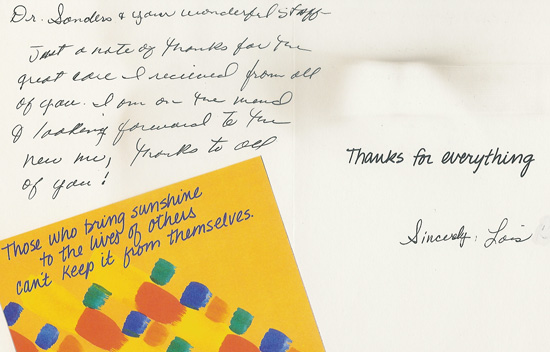 Dr. Sanders & your wonderful staff
Just a note of thanks for the
great care I recieved from all
of you. I am on the mend
& looking forward to the
new me, thanks to all
of you!
Thanks for everything
Sincerely, Lois
Those who bring sunshine
to the lives of others
can't keep it from themselves.